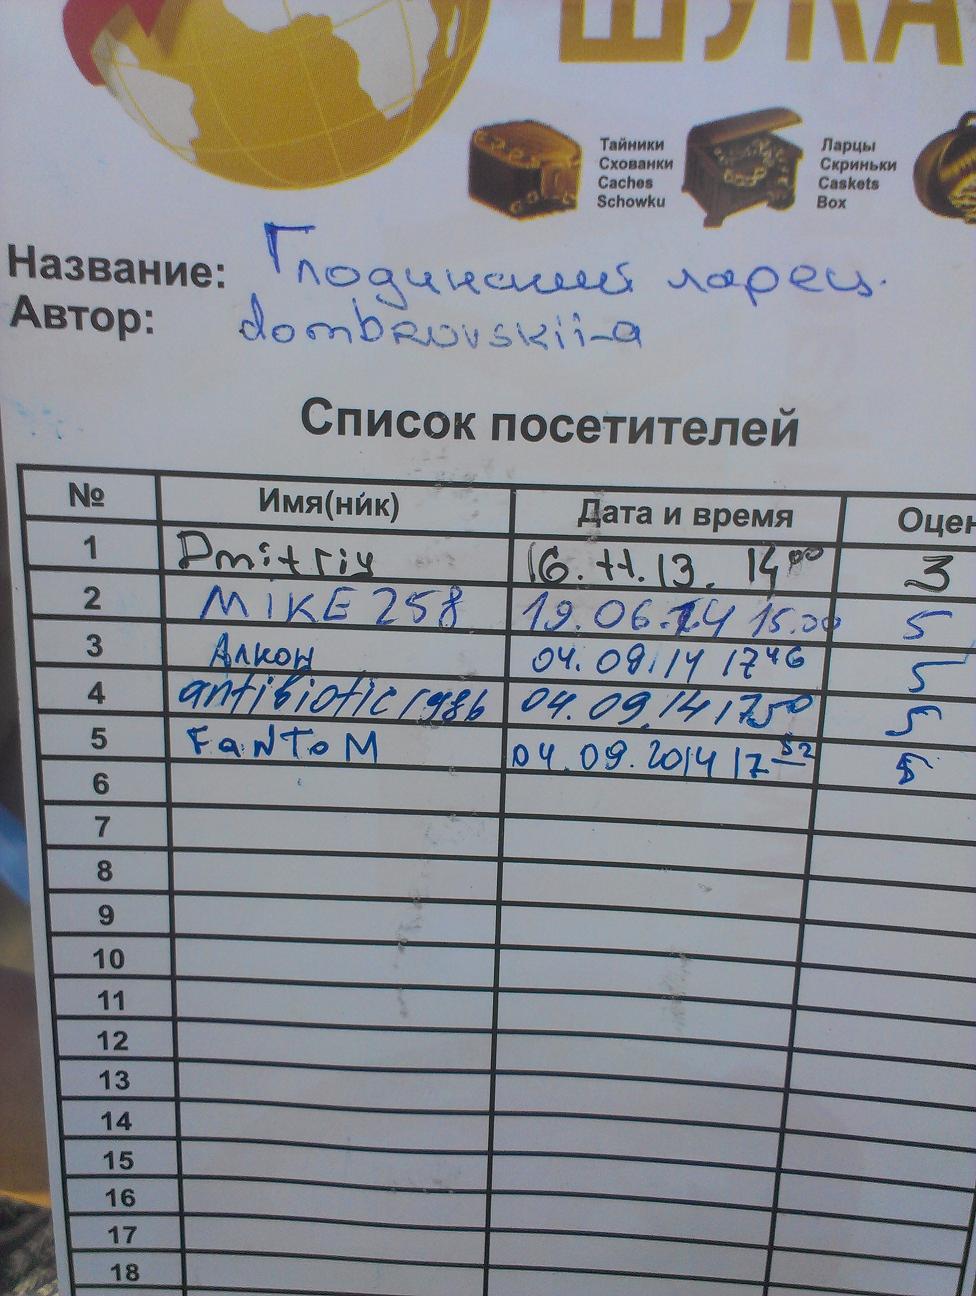 ШУКА
Тайники
Схованки
Caches
Schowku
Ларцы
Скриньки
Caskets
Box
Название: Глодинский ларец.
Автор: dombrovskii-a
Список посетителей
№ Имя(ник) Дата и время Оцен
1 Dmitriy 16.11.13. 14 00 3
2 MIKE 258 19.06.14 15.00 5
3 Алкон 04.09.14 17 46 5
4 antibiotic1986 04.09.14 17 50 5
5 FaNToM 04.09.2014 17 52 5
6
7
8
9
10
11
12
13
14
15
16
17
18